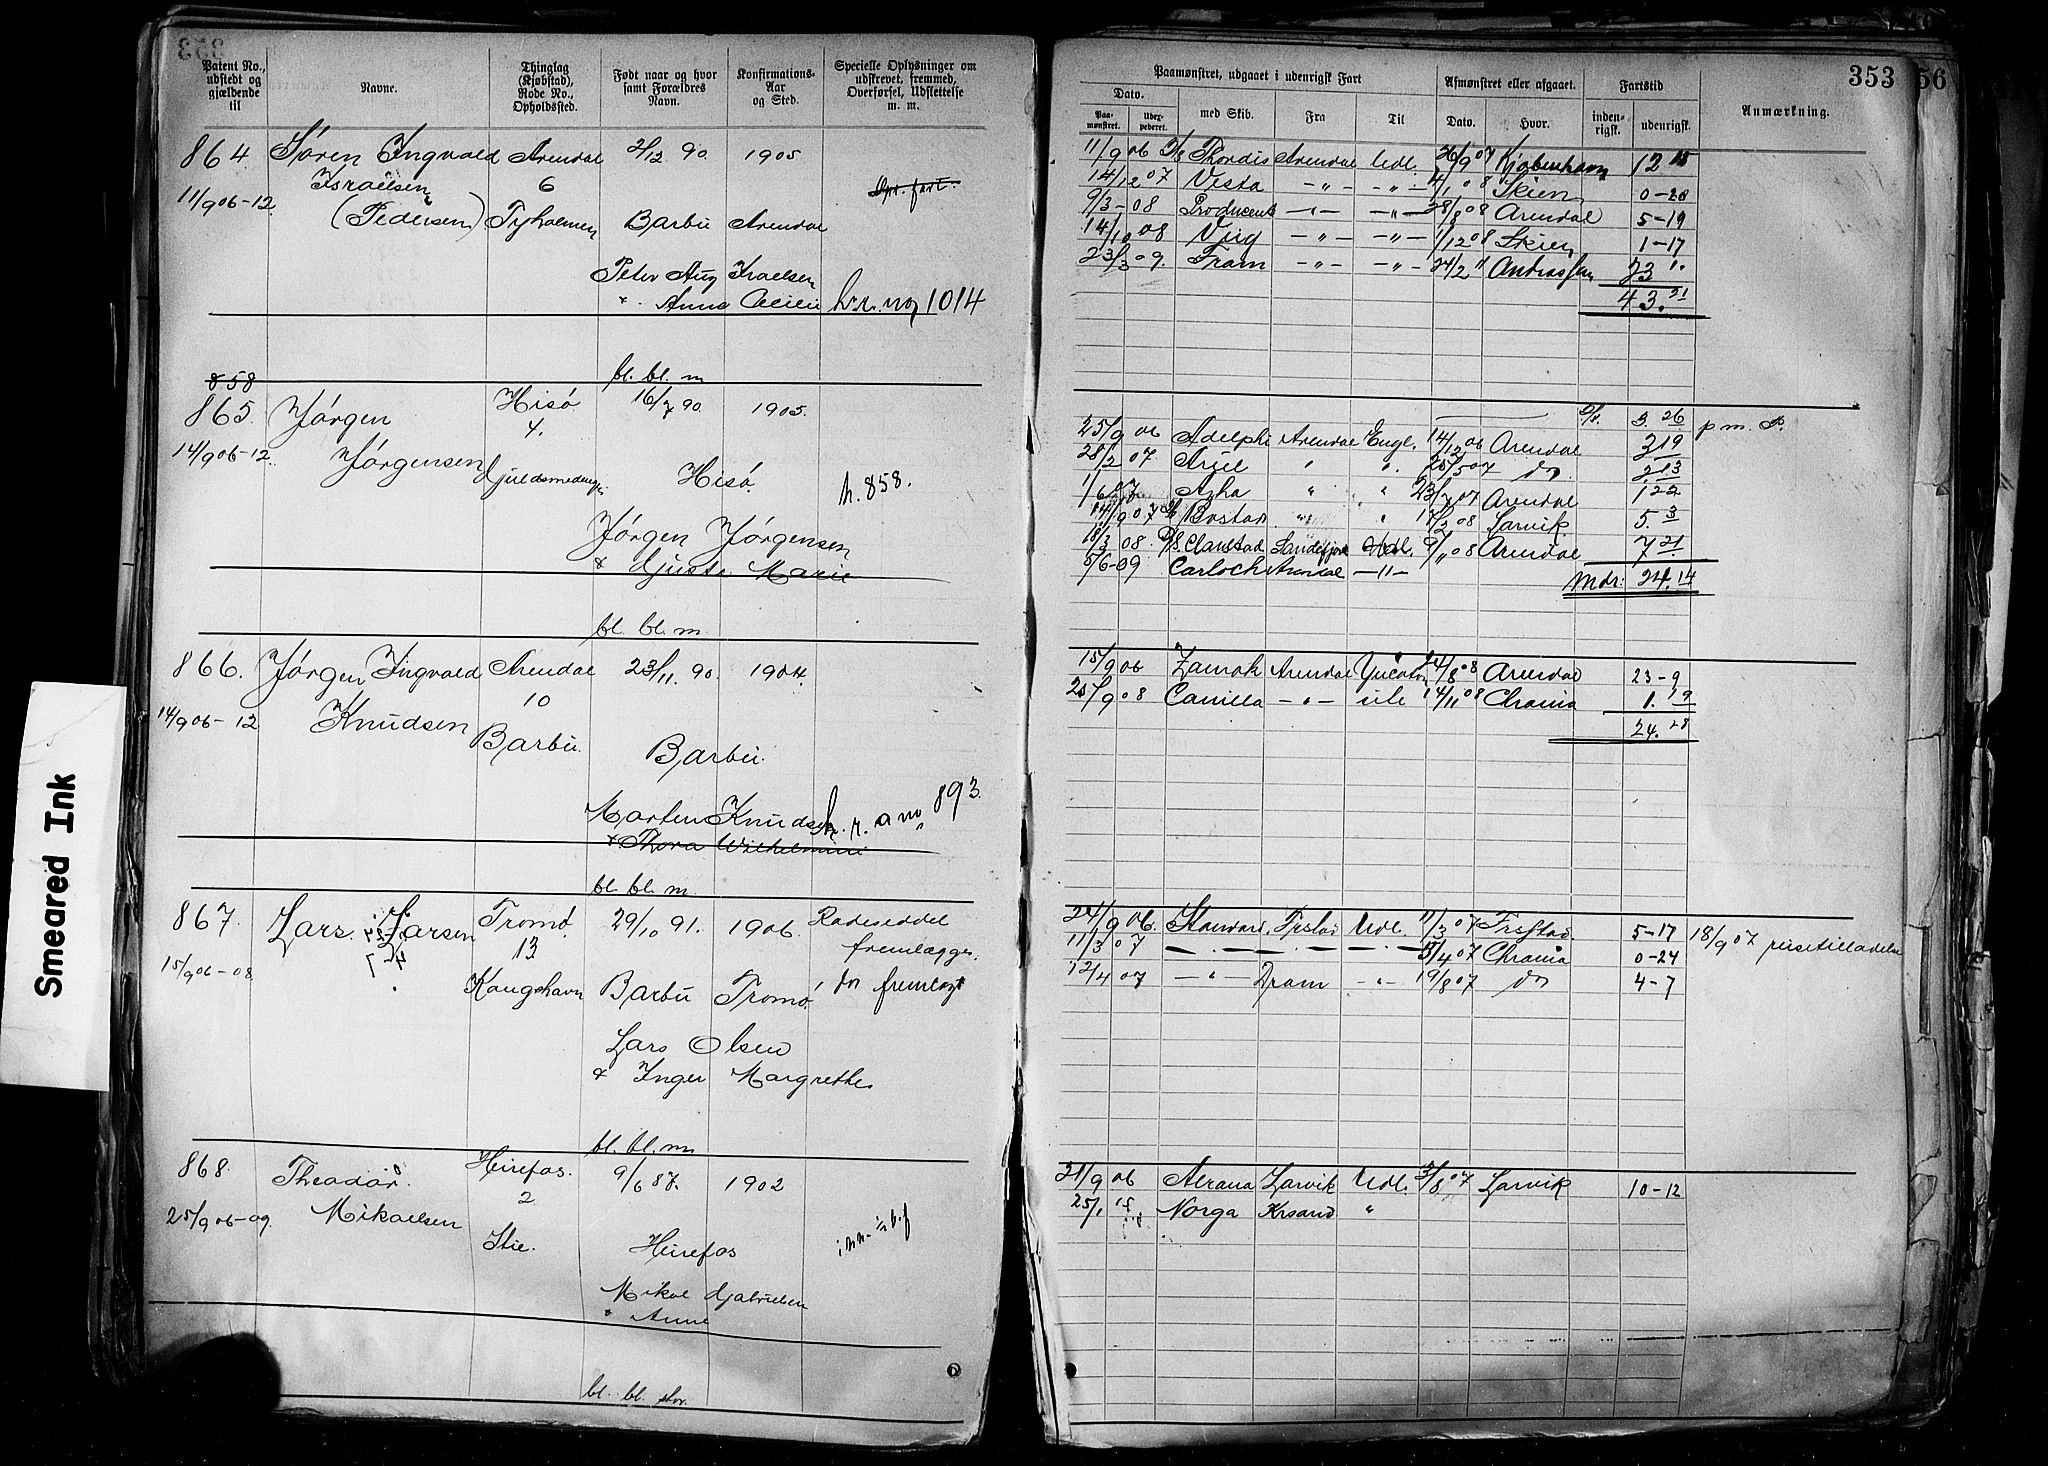 Smeared Ink
353
Patent No., udstedt og gjældende til
Navne.
Thinglag (Kjøbstad), Rode No., Opholdssted.
Født naar og hvor samt Forældres Navn.
Konfirmations-Aar og Sted.
Specielle Oplysninger om udskrevet, fremmed, Overførsel, Udslettelse m. m.
864 Søren Ingvald Arendal 2/12 90. 1905
11/9 06-12. Israelsen 6
(Pedersen) Tyholmen Barbu Arendal
Peter Aug Israelsen
Anna Cecilie hr. no 1014
bl. bl. m
858
865 Jørgen Hisø 16/7 90. 1905.
14/9 06-12. Jørgensen 4. Hisø. h. 858.
Jørgen Jørgensen
& Gjuste Marie
bl. bl. m
866. Jørgen Ingvald Arendal 23/11. 90. 1904.
14/9 06-12 Knudsen 10
Barbu. Barbu.
Marten Knudsen 893.
& Thora Wilhelmine
bl. bl. m
867. Lars Larsen Tromø. 29/10 91. 1906. Rodeseddel
13 fremlægges.
15/9 06-08 Kongshavn Barbu Tromø. do fremlagt
Lars Olsen
& Inger Margrethe
bl. bl. m
868. Theodor Hirefos. 9/6 87. 1902
25/9 06-09. Mikaelsen 2
Stie. Hirefos
Mikal Gabrielsen
& Anne
bl. bl. stor.
353 56
Paamønstret, udgaaet i udenrigsk Fart
Afmønstret eller afgaaet.
Fartstid
Anmærkning.
Dato.
Paa-mønstret.
Udex-pederet.
med Skib.
Fra
Til
Dato.
Hvor.
inden-rigsk.
udenrigsk.
11/9 06 Thordis Arendal Udl. 26/9 07 Kjøbenhavn 12 15
14/12 07 Vesta -"- -"- 4/1 08 Skien 0-20
9/3-08 Producent -"- -"- 28/8 08 Arendal 5-19
14/10 08 -"- -"- 1/12 08 Skien 1-17
23/3 09. Fram -"- -"- 24/2 11 23
43. 21
3. 26 p m. P.
25/9 06 Adelphi Arendal Engl. 14/12 06 Arendal 2 19
28/2 07 " " do 2. 13
1/6 07 " " 23/7 07 Arendal 1 22
14/9 07 " " 17/2 08 Larvik 5. 3
18/3 08. Sandefjord Udl. 9/11 08 Arendal 7 21
5/6-09 Carloch Arendal -"- Mdr: 24. 14
15/9 06 Zamoh Arendal Yucatan 24/8 08 Arendal 23-9
25/9 08 Camilla -"- 14/11 08 Chrania 1. 19
24. 28
24/9 06. Standard. Udl. 11/3 07 5-17 18/9 07 reisetilladelse
11/3 07 5/4 07 Chrania 0-24
12/4 07 -"- Dram -"- 19/8 07 do 4-7
21/9 06 Larvik Udl. 3/8 07 Larvik 10-12
25/1 Norga Krsand "